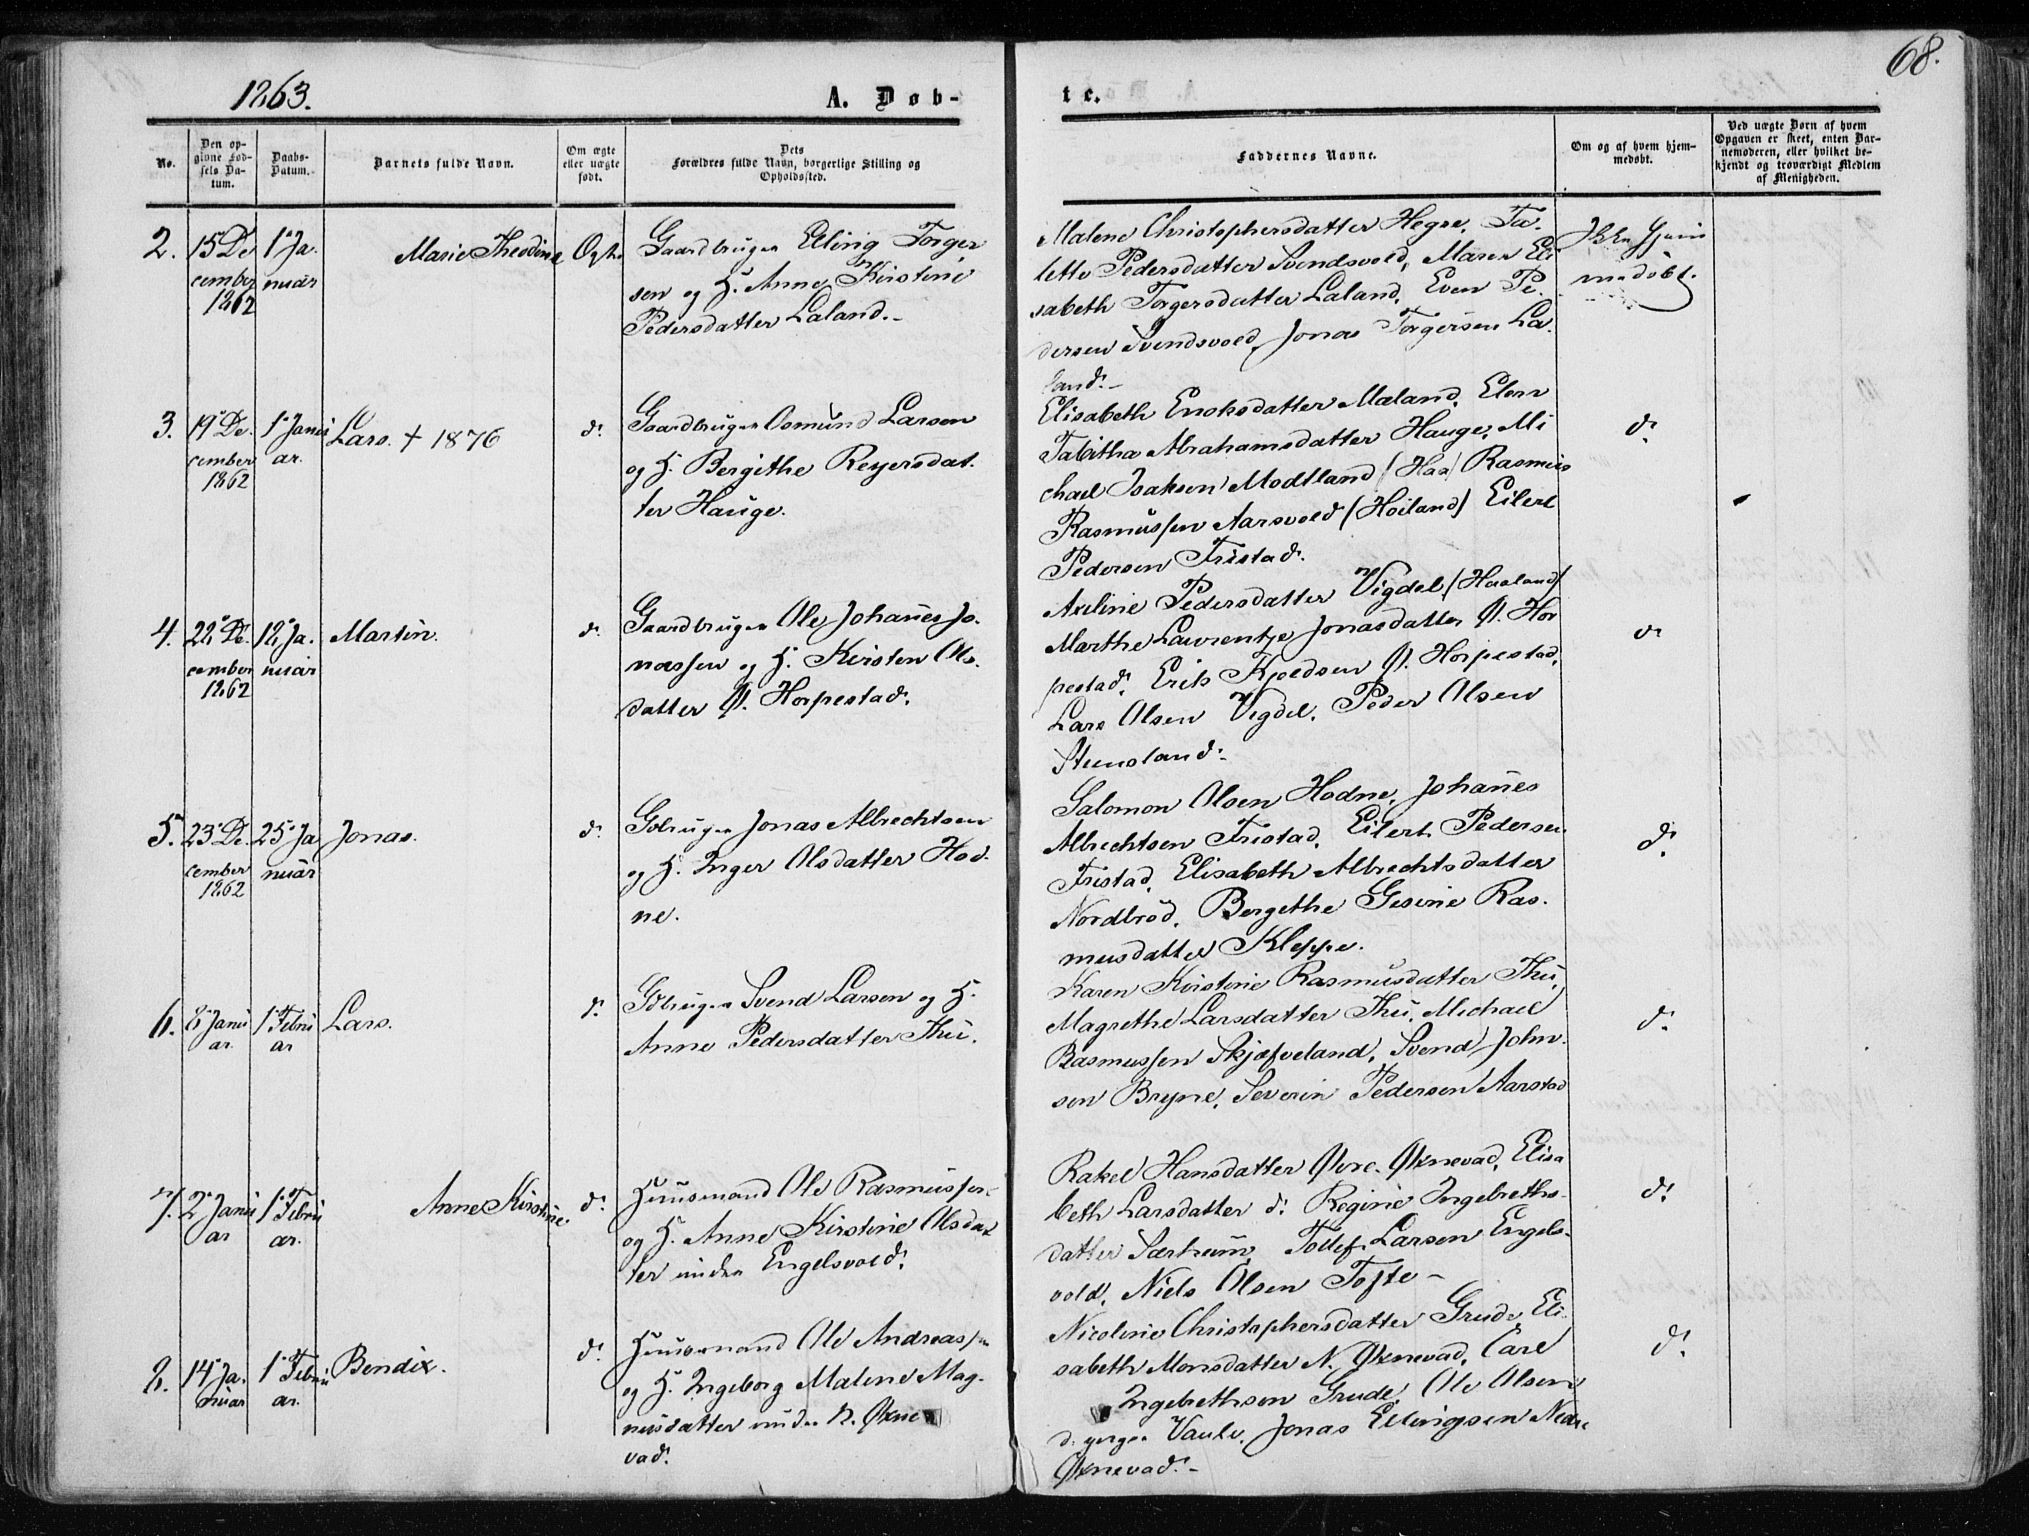 1863.
A. Døb-
te.
68.
No.
Den op-
givne Fød-
sels Da-
tum.
Daabs-
Datum.
Barnets fulde Navn.
Om ægte
eller uægte
født.
Dets
Forældres fulde Navn, borgerlige Stilling og
Opholdssted.
Faddernes Navne.
Om og af hvem hjem-
medøbt.
Ved uægte Børn af hvem
Opgaven er skeet, enten Bar-
nemoderen, eller hvilket be-
kjendt og troværdigt Medlem
af Menigheden.
2. 15 De
cember
1862
1 Ja
nuar
Marie Theodine
Ægte
Gaardbruger Elling Torger
sen og H. Anne Kirstine
Pedersdatter Laland.
Malene Christophersdatter Hegre, Ta-
lette Pedersdatter Svendsvold, Maren Eli
sabeth Torgersdatter Laland, Even Pe-
dersen Svendsvold, Jonas Torgersen La-
land.
Ikke hjem
medöbt.
3. 19 De-
cember
1862
1 Janu
ar.
Lars. † 1876
do
Gaardbruger Osmund Larsen
og H. Bergithe Reyersdat-
ter Hauge.
Elisabeth Enoksdatter Mæland, Elen
Tabitha Abrahamsdatter Hauge, Mi
chael Isaksen Modtland (Haa) Rasmus
Rasmussen Aarsvold (Høiland) Eilert
Pedersen Fristad.
do
4. 22 De-
cember
1862
12 Ja-
nuar
Martin.
do
Gaardbruger Ole Johannes Jo-
nassen og H. Kirsten Ols-
datter Ø. Horpestad.
Axeline Pedersdatter Vigdel (Haaland)
Marthe Laurentje Jonasdatter Ø. Hor
pestad, Erik Kjeldsen Ø. Horpestad,
Lars Olsen Vigdel, Peder Olsen
Steensland.
do
5. 23 De-
cember
1862
25 Ja
nuar
Jonas.
do
Gdbruger Jonas Albrechtsen
og H. Inger Olsdatter Hod-
ne.
Salomon Olsen Hodne, Johannes
Albrechtsen Fristad, Eilert Pedersen
Fristad, Elisabeth Albrechtsdatter
Nordbrød, Bergethe Gesine Ras-
musdatter Kleppe.
do
6. 8 Janu
ar.
1 Febru
ar
Lars.
do
Gdbruger Svend Larsen og H.
Anne Pedersdatter Thu.
Karen Kirstine Rasmusdatter Thu,
Magrethe Larsdatter Thu, Michael
Rasmussen Skjæfveland, Svend John-
sen Bryne, Severin Pedersen Aarstad
do
7. 2 Janu
ar
1 Febru
ar.
Anne Kirstine.
do
Huusmand Ole Rasmussen
og H. Anne Kirstine Olsdat
ter under Engelsvold.
Rakel Hansdatter Øvre-Øxnevad, Elisa
beth Larsdatter do Regine Ingebreths-
datter Særheim, Tollef Larsen Engels-
vold, Niels Olsen Tofte
do
8. 14 Ja-
nuar
1 Febru
ar.
Bendix.
do
Huusmand Ole Andreassen
og H. Ingeborg Malene Mag-
nusdatter under N. Øxne
vad.
Nicoline Christophersdatter Grude, Eli
sabeth Monsdatter N. Øxnevad, Carl
Ingebrethsen Grude, Ole Olsen
d. yngre Vaule, Jonas Ellingsen Nedre
Øxnevad.
do